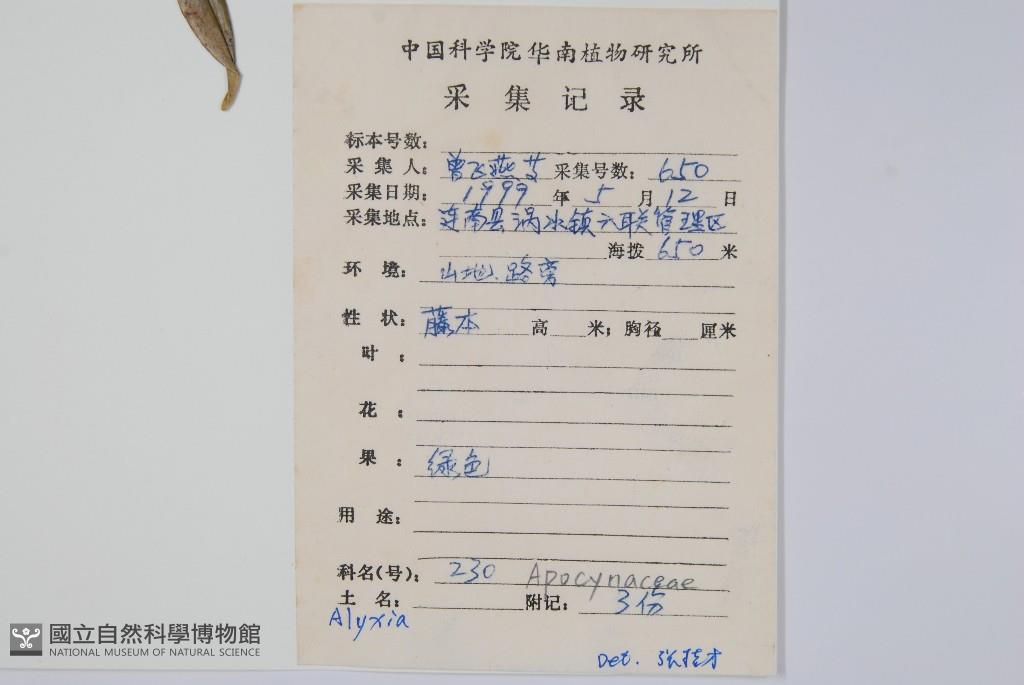 中国科学院华南植物研究所
采集记录
标本号数:
采集人: 曾飞燕等 采集号数: 650
采集日期: 1999 年 5 月 12 日
采集地点: 连南县涡水镇六联管理区
海拨 650 米
环境: 山地.路旁
性状: 藤本 高 米; 胸径 厘米
叶:
花:
果: 绿色
用途:
科名(号): 230 Apocynaceae
土名: 附记: 3份
Alyxia
Det. 张桂才
國立自然科學博物館
NATIONAL MUSEUM OF NATURAL SCIENCE